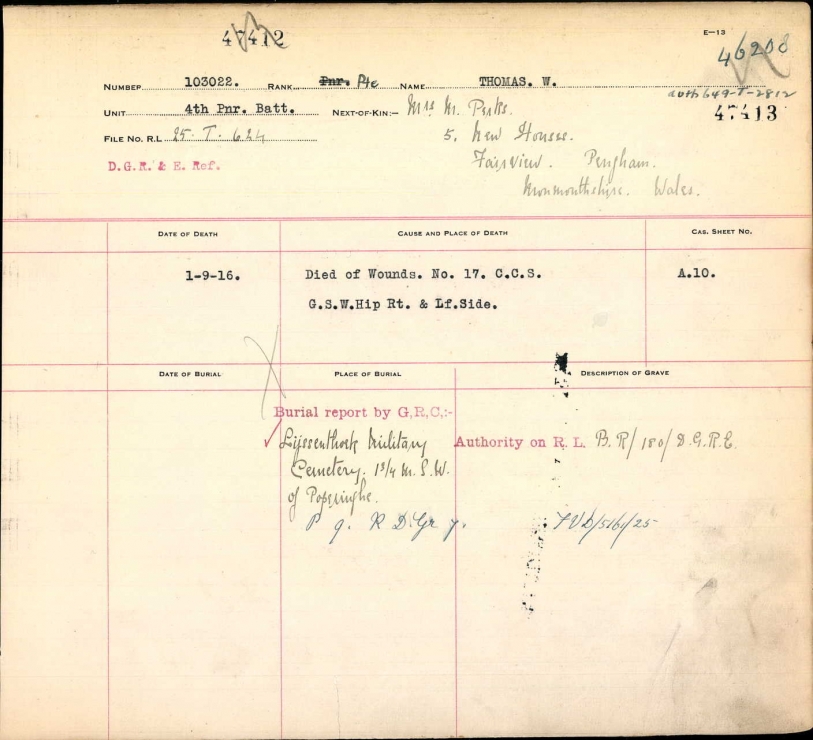 47412
E-13
46208
NUMBER 103022. RANK Pnr. Pte NAME THOMAS. W.
auth 649-T-2812
47413
UNIT 4th Pnr. Batt. NEXT-OF-KIN:- Mrs M. Perks.
5. New Houses.
FILE NO. R.L 25. T. 624
Fairview. Pengham.
D.G.R. & E. Ref.
Monmouthshire. Wales.
DATE OF DEATH CAUSE AND PLACE OF DEATH CAS. SHEET NO.
1-9-16. Died of Wounds. No. 17. C.C.S. A.10.
G.S.W.Hip Rt. & Lf.Side.
DATE OF BURIAL PLACE OF BURIAL DESCRIPTION OF GRAVE
Burial report by G,R,C,:-
Lijssenthoek Military Authority on R. L. B.R/180/D.G.R.E.
Cemetery. 1 3/4 M. S.W.
of Poperinghe.
P 9. R D. Gr 7.